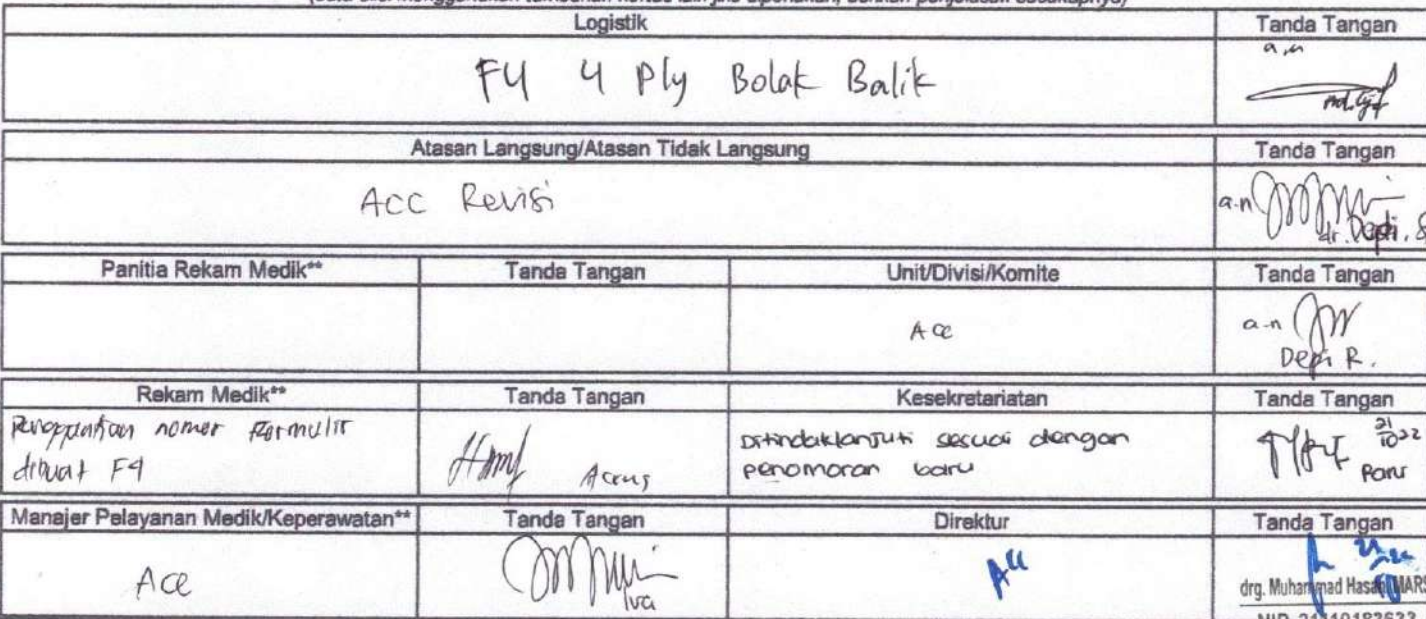 Logistik Tanda Tangan
F4 4 Ply Bolak Balik a.n
Atasan Langsung/Atasan Tidak Langsung Tanda Tangan
ACC Revisi a.n
Panitia Rekam Medik** Tanda Tangan Unit/Divisi/Komite Tanda Tangan
Acc a.n
Depi R.
Rekam Medik** Tanda Tangan Kesekretariatan Tanda Tangan
nomor Formulir Ditindaklanjuti sesuai dengan 21/10 22
dibuat F4 penomoran baru
Manajer Pelayanan Medik/Keperawatan** Tanda Tangan Direktur Tanda Tangan
Acc Iva Acc
drg. Muhammad Hasan, MARS